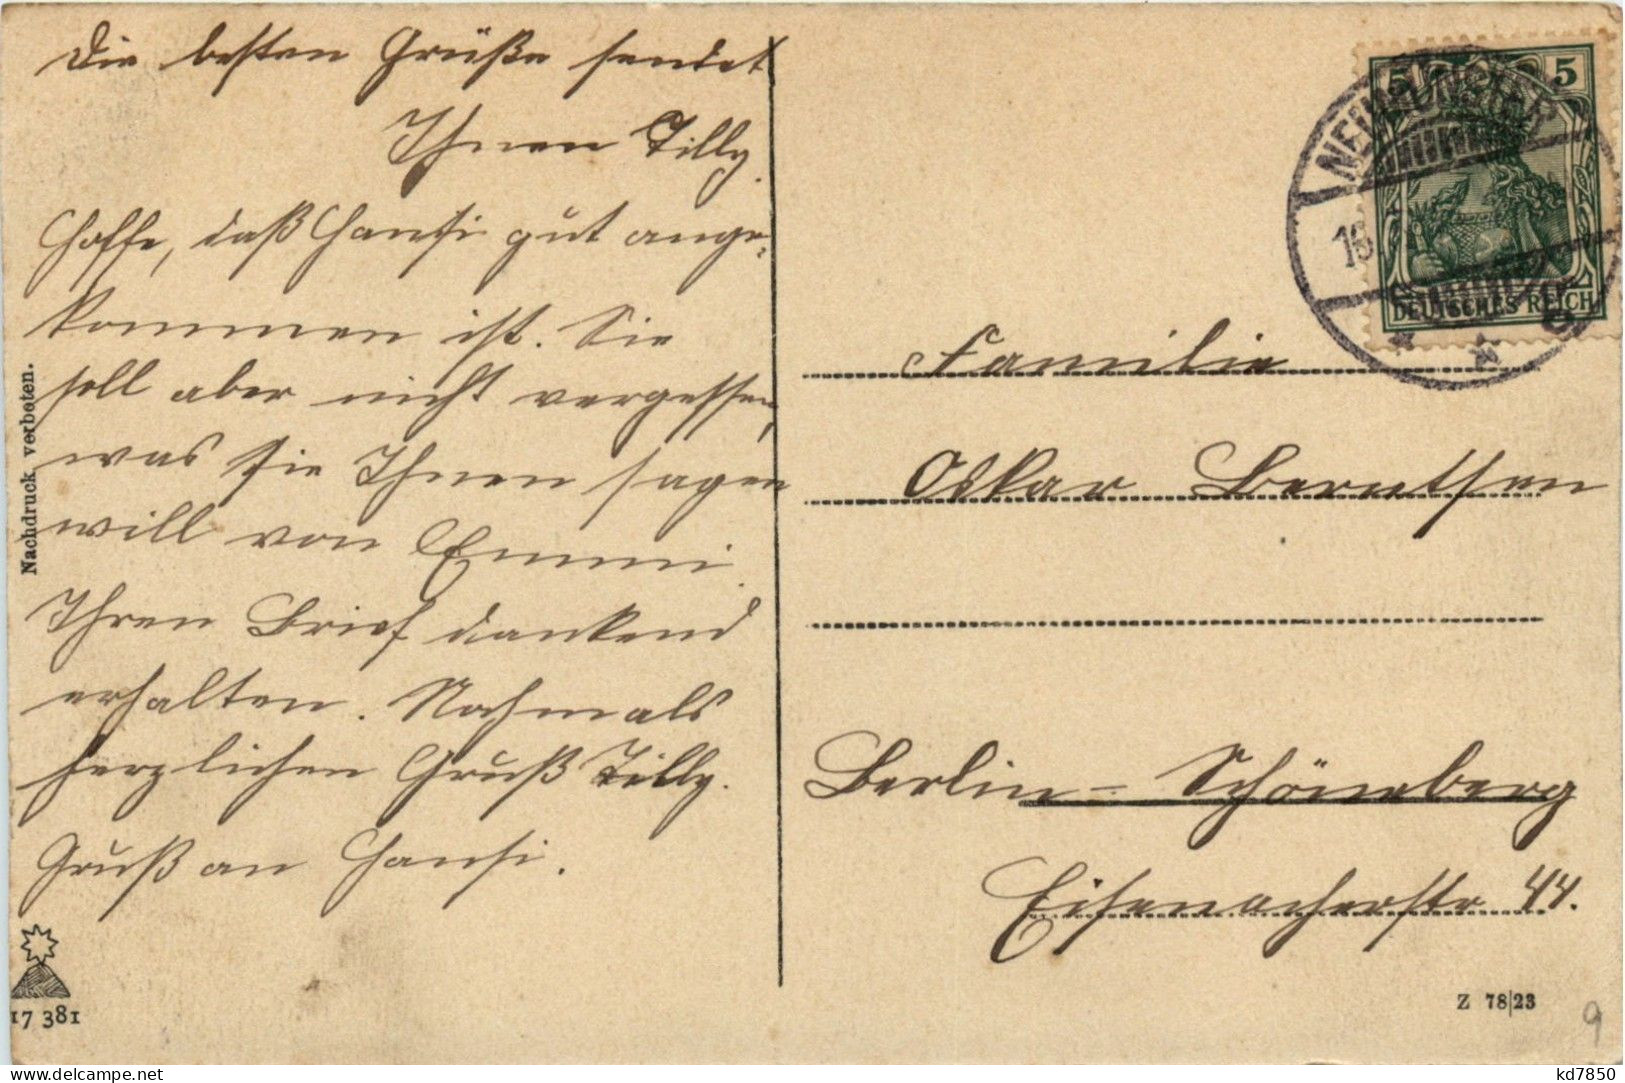 Die besten Grüße sendet
Ihnen Tilly.
Hoffe, daß Hansi gut ange-
kommen ist. Sie
soll aber nicht vergessen,
was sie Ihnen sagen
will von Emmi.
Ihren Brief dankend
erhalten. Nochmals
herzlichen Gruß Tilly.
Gruß an Hansi.
Nachdruck verboten.
17 381
5 5
DEUTSCHES REICH
NEUMÜNSTER
16
Familie
Oskar Berntsen
Berlin-Schöneberg
Eisenacherstr 44.
Z 78/23
9
kd7850